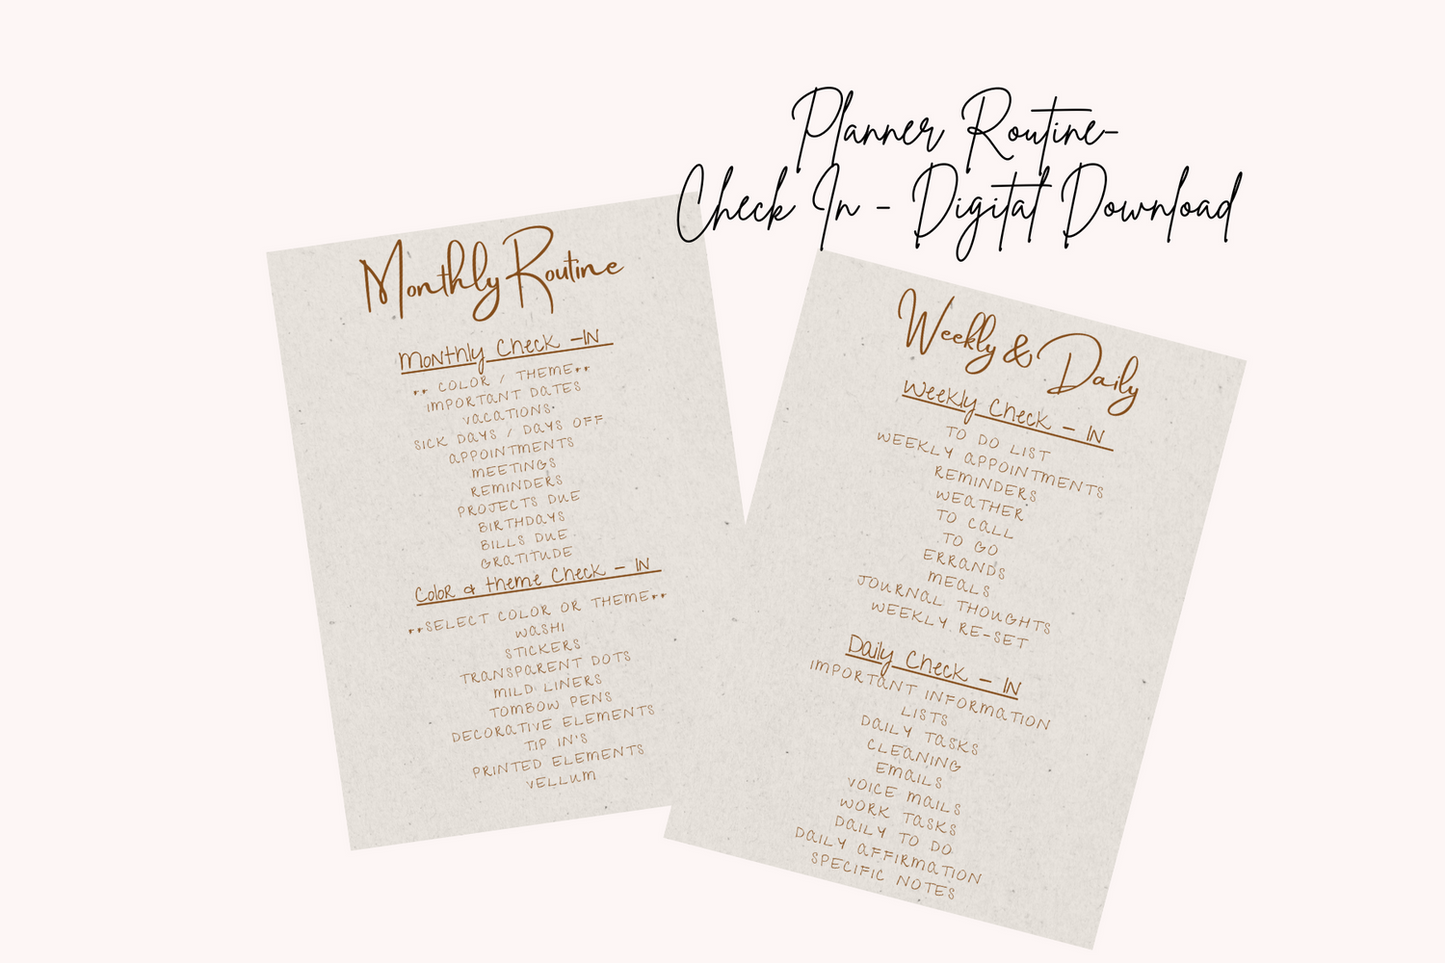 Planner Routine-
Check In - Digital Download
Monthly Routine
Monthly Check -IN
** COLOR / THEME**
IMPORTANT DATES
VACATIONS.
SICK DAYS / DAYS OFF
APPOINTMENTS
MEETINGS
REMINDERS
PROJECTS DUE
BIRTHDAYS
BILLS DUE
GRATITUDE
Color & theme Check - IN
**SELECT COLOR OR THEME**
WASHI
STICKERS
TRANSPARENT DOTS
MILD LINERS
TOMBOW PENS
DECORATIVE ELEMENTS
TIP IN'S
PRINTED ELEMENTS
VELLUM
Weekly & Daily
Weekly Check - IN
TO DO LIST
WEEKLY APPOINTMENTS
REMINDERS
WEATHER
TO CALL
TO GO
ERRANDS
MEALS
JOURNAL THOUGHTS
WEEKLY RE-SET
Daily Check - IN
IMPORTANT INFORMATION
LISTS
DAILY TASKS
CLEANING
EMAILS
VOICE MAILS
WORK TASKS
DAILY TO DO
DAILY AFFIRMATION
SPECIFIC NOTES